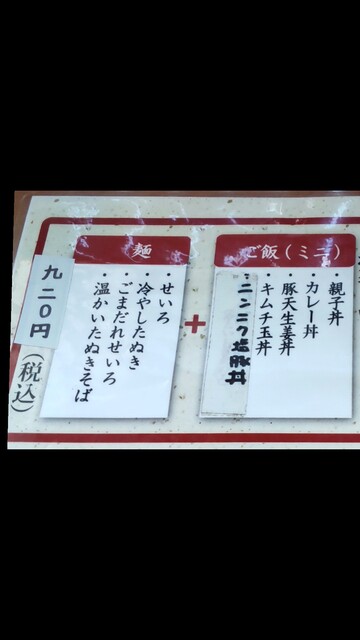 ご飯(ミニ)
親子丼
カレー丼
豚天生姜丼
キムチ玉丼
・ニンニク塩豚丼
+
麺
・せいろ
・冷やしたぬき
・ごまだれせいろ
・温かいたぬきそば
九二〇円
(税込)